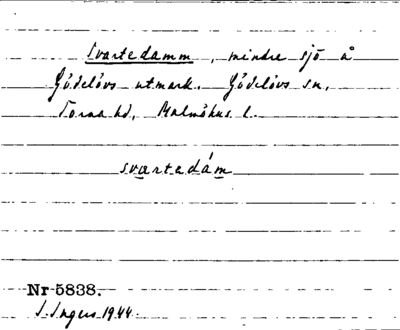 Svartedamm, mindre sjö å
Gödelövs utmark. Gödelövs sn,
Torna hd, Malmöhus l.
svartedám
Nr 5838.
I. Ingers 1944.